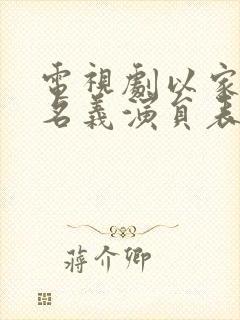 電視劇以家
名義演員表
蔣介卿